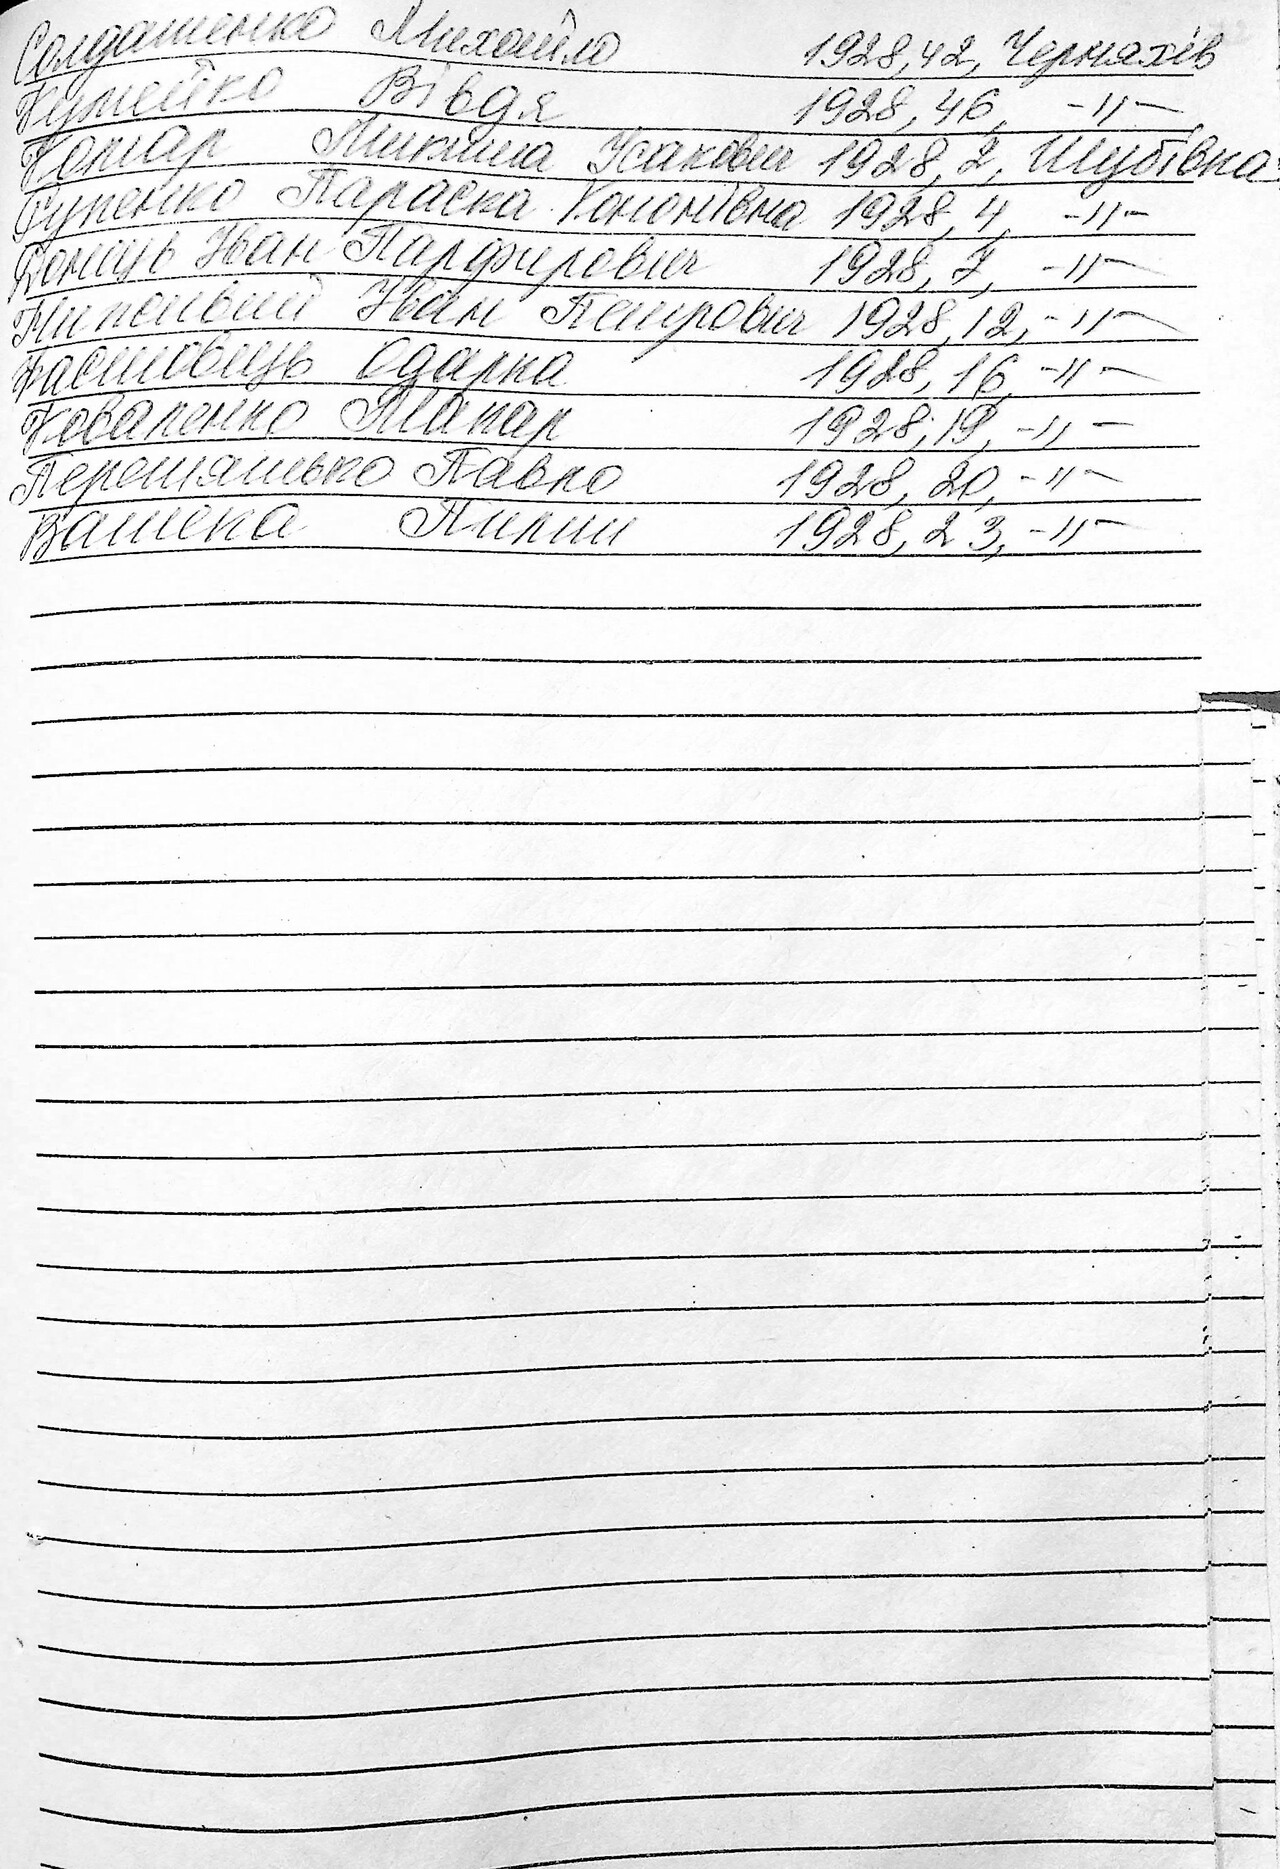 Солдатенко Михайло 1928, 42, Черняхів
Кумейко Вівдя 1928, 46, -〃-
Гончар Микита Усакович 1928, 2, Шубівка
Супенко Параска Кононівна 1928, 4, -〃-
Донець Іван Парфирович 1928, 7, -〃-
Іван Петрович 1928, 12, -〃-
Касновець Одарка 1928, 16, -〃-
Коваленко Макар 1928, 19, -〃-
Перетятько Павло 1928, 20, -〃-
Ващека Пилип 1928, 23, -〃-